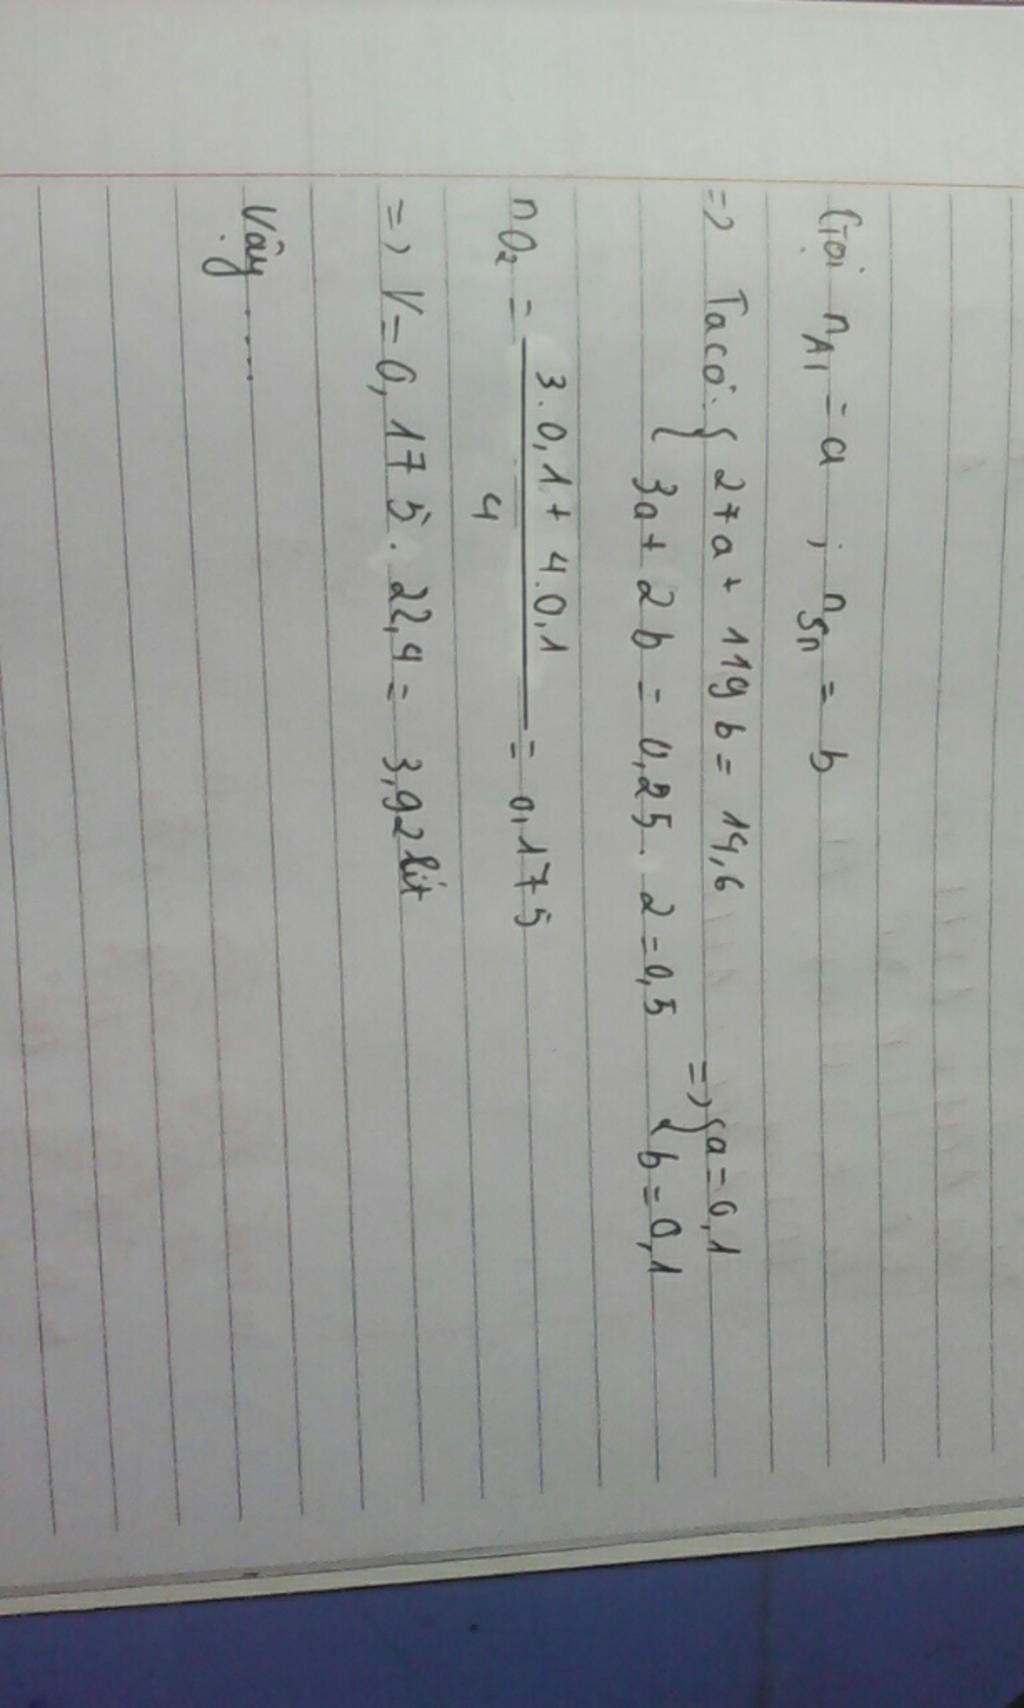 Gọi nAl = a ; nSn = b
=> Ta có: { 27a + 119b = 14,6
{ 3a + 2b = 0,25 . 2 = 0,5
=> { a = 0,1
{ b = 0,1
nO2 = 3.0,1 + 4.0,1 / 4 = 0,175
=> V = 0,175 . 22,4 = 3,92 lít
Vậy .....